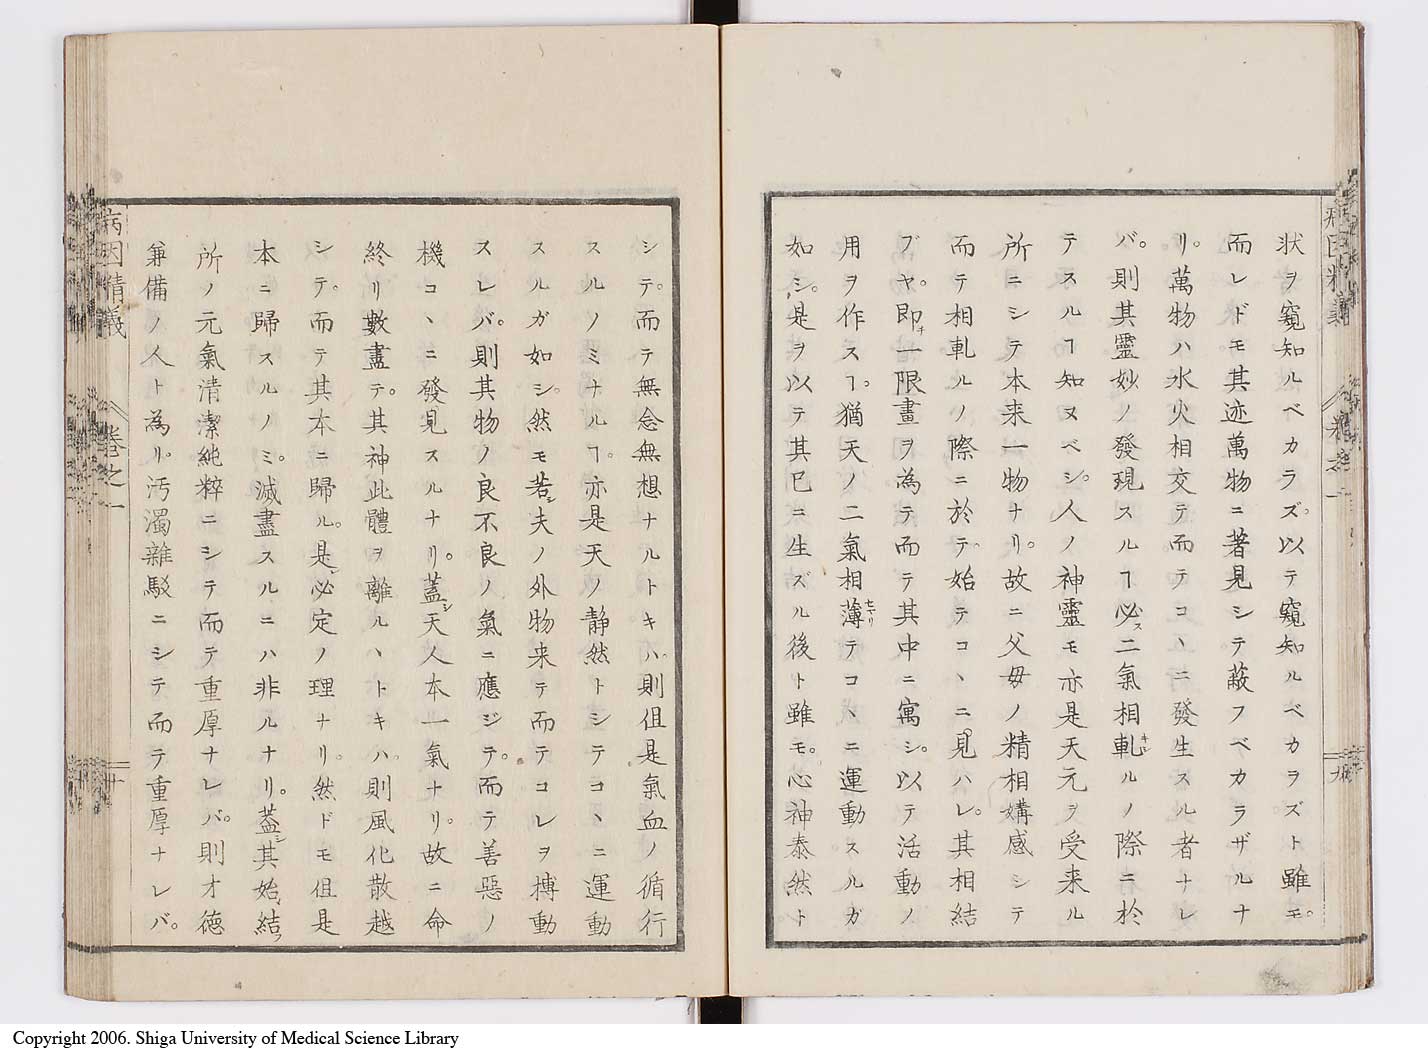 状ヲ窺知ルベカラズ。以テ窺知ルベカラズト雖モ。
而レドモ其迹萬物ニ著見シテ蔽フベカラザルナ
リ。萬物ハ水火相交テ而テコヽニ發生スル者ナレ
バ。則其靈妙ノ發現スルヿ必ス二氣相軋キシルノ際ニ於
テスルヿ知ヌベシ。人ノ神靈モ亦是天元ヲ受来ル
所ニシテ本来一物ナリ。故ニ父毋ノ精相媾感シテ
而テ相軋ルノ際ニ於テ。始テコヽニ見ハレ。其相結
ブヤ。即チ一限畫ヲ為テ而テ其中ニ寓シ。以テ活動ノ
用ヲ作スヿ。猶天ノ二氣相薄セマリテコヽニ運動スルガ
如シ。是ヲ以テ其已ニ生ズル後ト雖モ。心神泰然ト
シテ。而テ無念無想ナルトキハ。則但是氣血ノ循行
スルノミナルヿ。亦是天ノ静然トシテコヽニ運動
スルガ如シ。然モ若シ夫ノ外物来テ而テコレヲ搏動
スレバ。則其物ノ良不良ノ氣ニ應ジテ。而テ善惡ノ
機コヽニ發見スルナリ。蓋シ天人本一氣ナリ。故ニ命
終リ數盡テ。其神此體ヲ離ルヽトキハ。則風化散越
シテ。而テ其本ニ歸ル。是レ必定ノ理ナリ。然ドモ但是
本ニ歸スルノミ。滅盡スルニハ非ルナリ。蓋シ其始結フ
所ノ元氣清潔純粹ニシテ而テ重厚ナレバ。則才德
兼備ノ人ト為リ。汚濁雜駁ニシテ而テ重厚ナレバ。
病因精義
卷之一
九
病因精義
卷之一
十
Copyright 2006. Shiga University of Medical Science Library